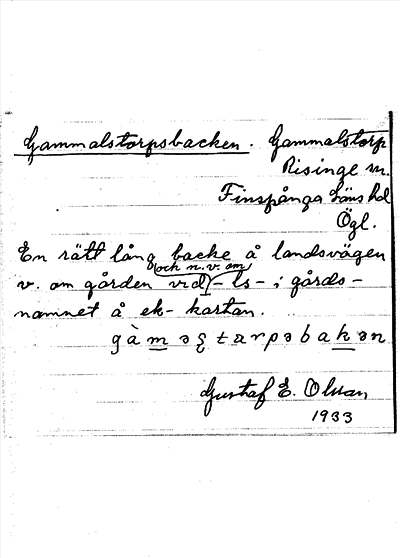 Gammalstorpsbacken. Gammalstorp
Risinge sn.
Finspånga läns hd
Ögl.
En rätt lång backe å landsvägen
och n.v. om
v. om gården vid -ls- i gårds-
namnet å ek-kartan.
gàməʂtarpsbakən
Gustaf E. Olsson
1933